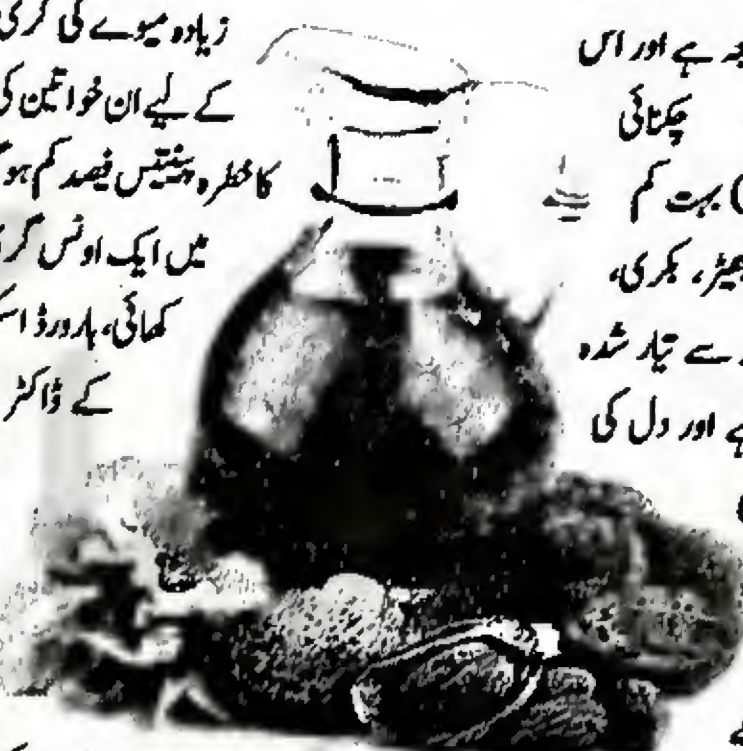 ہے اور اس
چکنائی
) بہت کم
بھیڑ، بکری،
سے تیار شدہ
ہے اور دل کی
زیادہ میوے کی گری
کے لیے ان خواتین کی
کا خطرہ پینتیس فیصد کم ہو
میں ایک اونس گری
کھائی، ہارورڈ اس
کے ڈاکٹر